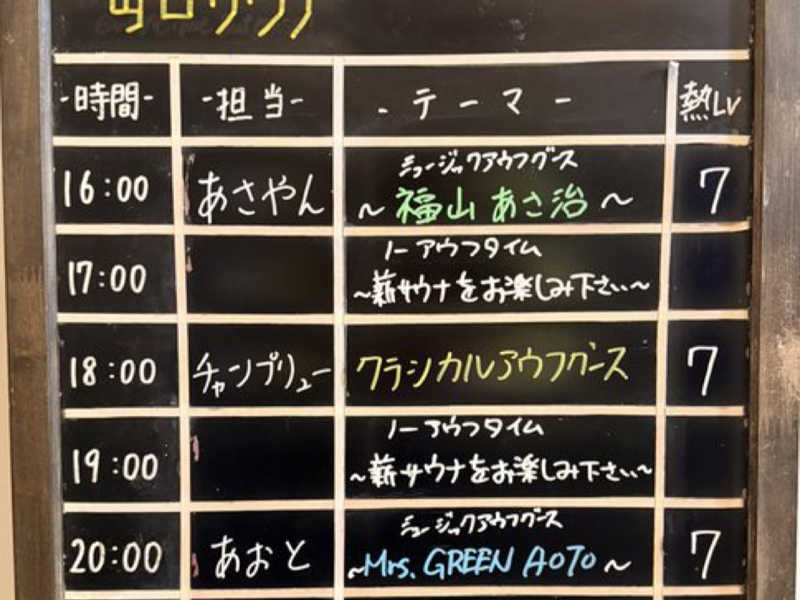 -時間- -担当- -テーマ- 熱Lv
ミュージックアウフグース
16:00 あさやん ～福山あさ治～ 7
ノーアウフタイム
17:00 ～薪サウナをお楽しみ下さい～
18:00 チャンプリュー クラシカルアウフグース 7
ノーアウフタイム
19:00 ～薪サウナをお楽しみ下さい～
ミュージックアウフグース
20:00 あおと ～Mrs. GREEN AOTO～ 7